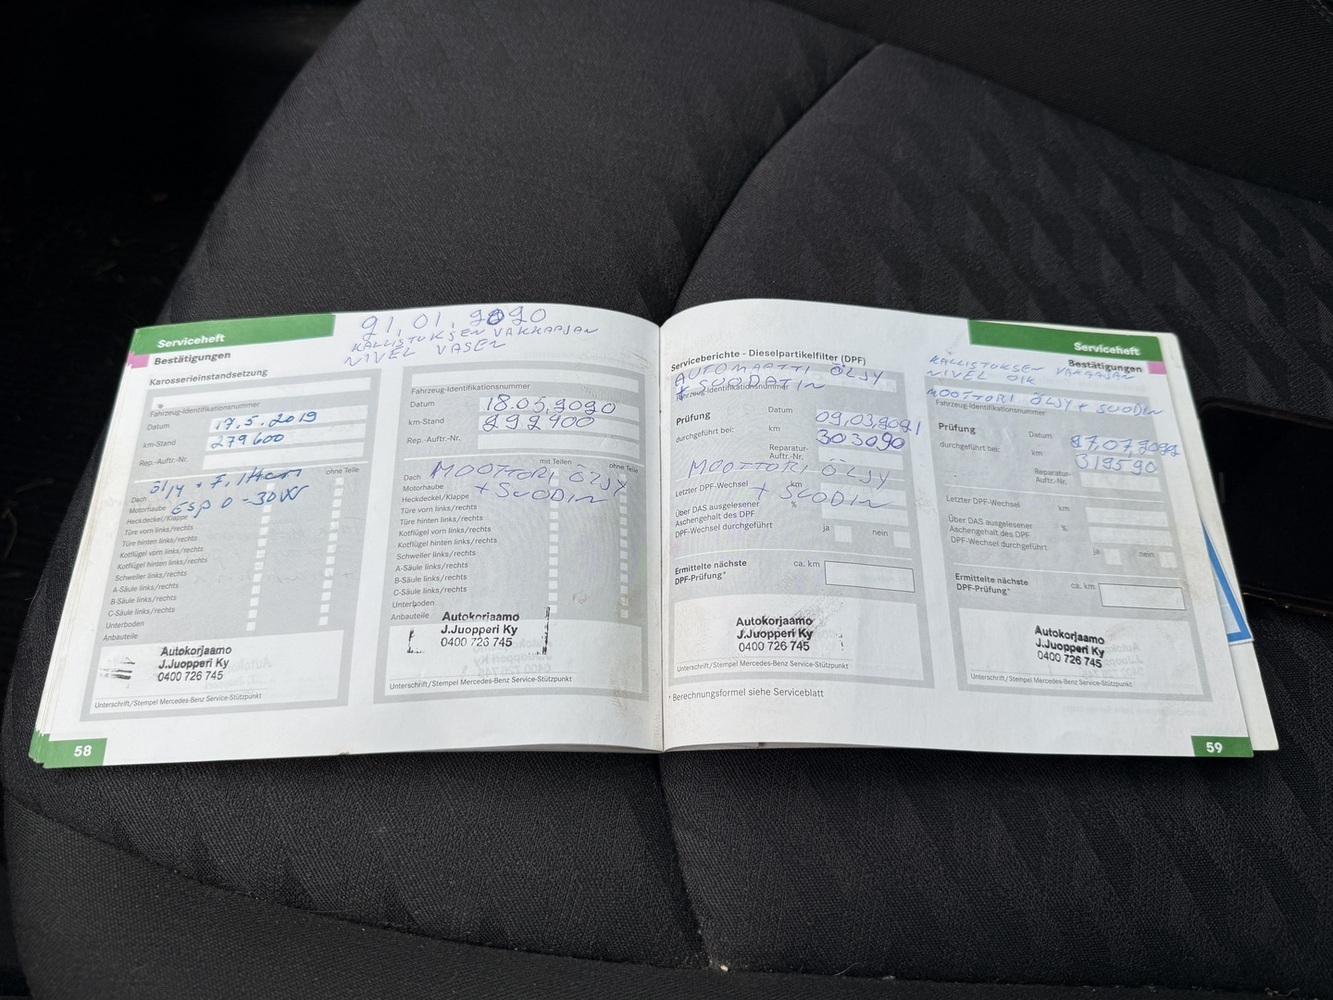 Serviceheft
Bestätigungen
21.01.2020
KALLISTUKSEN VAKKAAJAN
NIVEL VASEN
Karosserieinstandsetzung
Fahrzeug-Identifikationsnummer
Datum 17.5.2019
km-Stand 279600
Rep.-Auftr.-Nr.
ohne Teile
öljy +
Dach
Motorhaube
Heckdeckel/Klappe
Türe vorn links/rechts
Türe hinten links/rechts
Kotflügel vorn links/rechts
Kotflügel hinten links/rechts
Schweller links/rechts
A-Säule links/rechts
B-Säule links/rechts
C-Säule links/rechts
Unterboden
Anbauteile
Autokorjaamo
J.Juopperi Ky
0400 726 745
Unterschrift/Stempel Mercedes-Benz Service-Stützpunkt
58
Fahrzeug-Identifikationsnummer
Datum 18.05.2020
km-Stand 292400
Rep.-Auftr.-Nr.
mit Teilen ohne Teile
MOOTTORI ÖLJY
+ SUODIN
Dach
Motorhaube
Heckdeckel/Klappe
Türe vorn links/rechts
Türe hinten links/rechts
Kotflügel vorn links/rechts
Kotflügel hinten links/rechts
Schweller links/rechts
A-Säule links/rechts
B-Säule links/rechts
C-Säule links/rechts
Unterboden
Anbauteile
Autokorjaamo
J.Juopperi Ky
0400 726 745
Unterschrift/Stempel Mercedes-Benz Service-Stützpunkt
Serviceberichte - Dieselpartikelfilter (DPF)
AUTOMAATTI ÖLJY
+ SUODATIN
Fahrzeug-Identifikationsnummer
Prüfung
durchgeführt bei:
Datum 09.03.2021
km 303090
Reparatur-
Auftr.-Nr.
MOOTTORI ÖLJY
+ SUODIN
Letzter DPF-Wechsel km
Über DAS ausgelesener %
Aschengehalt des DPF
DPF-Wechsel durchgeführt ja nein
Ermittelte nächste ca. km
DPF-Prüfung*
Autokorjaamo
J.Juopperi Ky
0400 726 745
Unterschrift/Stempel Mercedes-Benz Service-Stützpunkt
* Berechnungsformel siehe Serviceblatt
Serviceheft
Bestätigungen
KALLISTUKSEN VAKAAJAN
NIVEL OIK
MOOTTORI ÖLJY + SUODIN
Fahrzeug-Identifikationsnummer
Prüfung
durchgeführt bei:
Datum
km 319590
Reparatur-
Auftr.-Nr.
Letzter DPF-Wechsel km
Über DAS ausgelesener %
Aschengehalt des DPF
DPF-Wechsel durchgeführt ja nein
Ermittelte nächste ca. km
DPF-Prüfung*
Autokorjaamo
J.Juopperi Ky
0400 726 745
Unterschrift/Stempel Mercedes-Benz Service-Stützpunkt
59